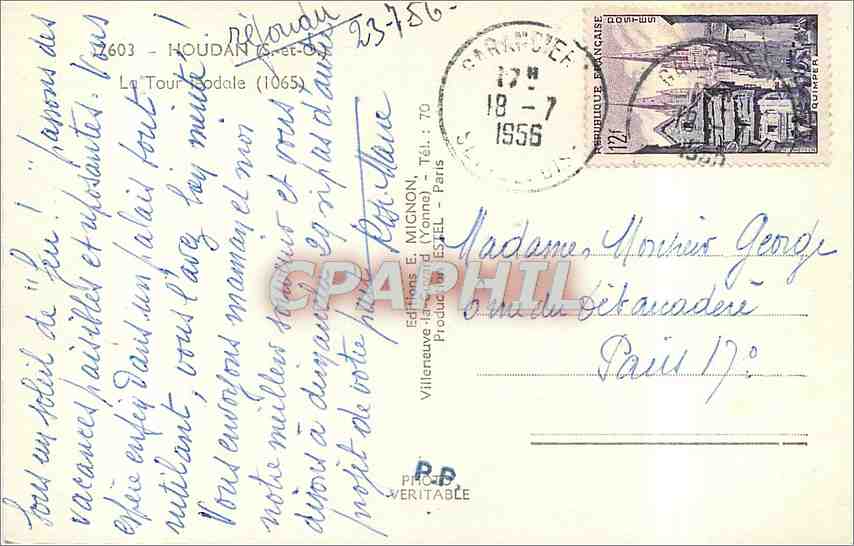 7603 - HOUDAN (S.-et-O.)
La Tour Podale (1065)
répondu
23-7-56-
Sous un soleil de "feu!" passons des
vacances paisibles et reposantes. Vous
espère enfin dans un palais tout
rutilant, vous l'avez bien mérité!
Vous envoyons maman et moi
notre meilleur souvenir et vous
disons à dimanche 29 si pas d'autre
projet de votre part Rose-Marie
Editions E. MIGNON,
Villeneuve-la-Guyard (Yonne) - Tél. : 70
Production ESTEL - Paris
P.P.
PHOTO
VERITABLE
GARANCIERES
17 H
18 - 7
1956
SEINE-ET-OISE
REPUBLIQUE FRANÇAISE
POSTES
12F
QUIMPER
Madame, Monsieur George
6 rue du Débarcadère
Paris 17º
CPAPHIL